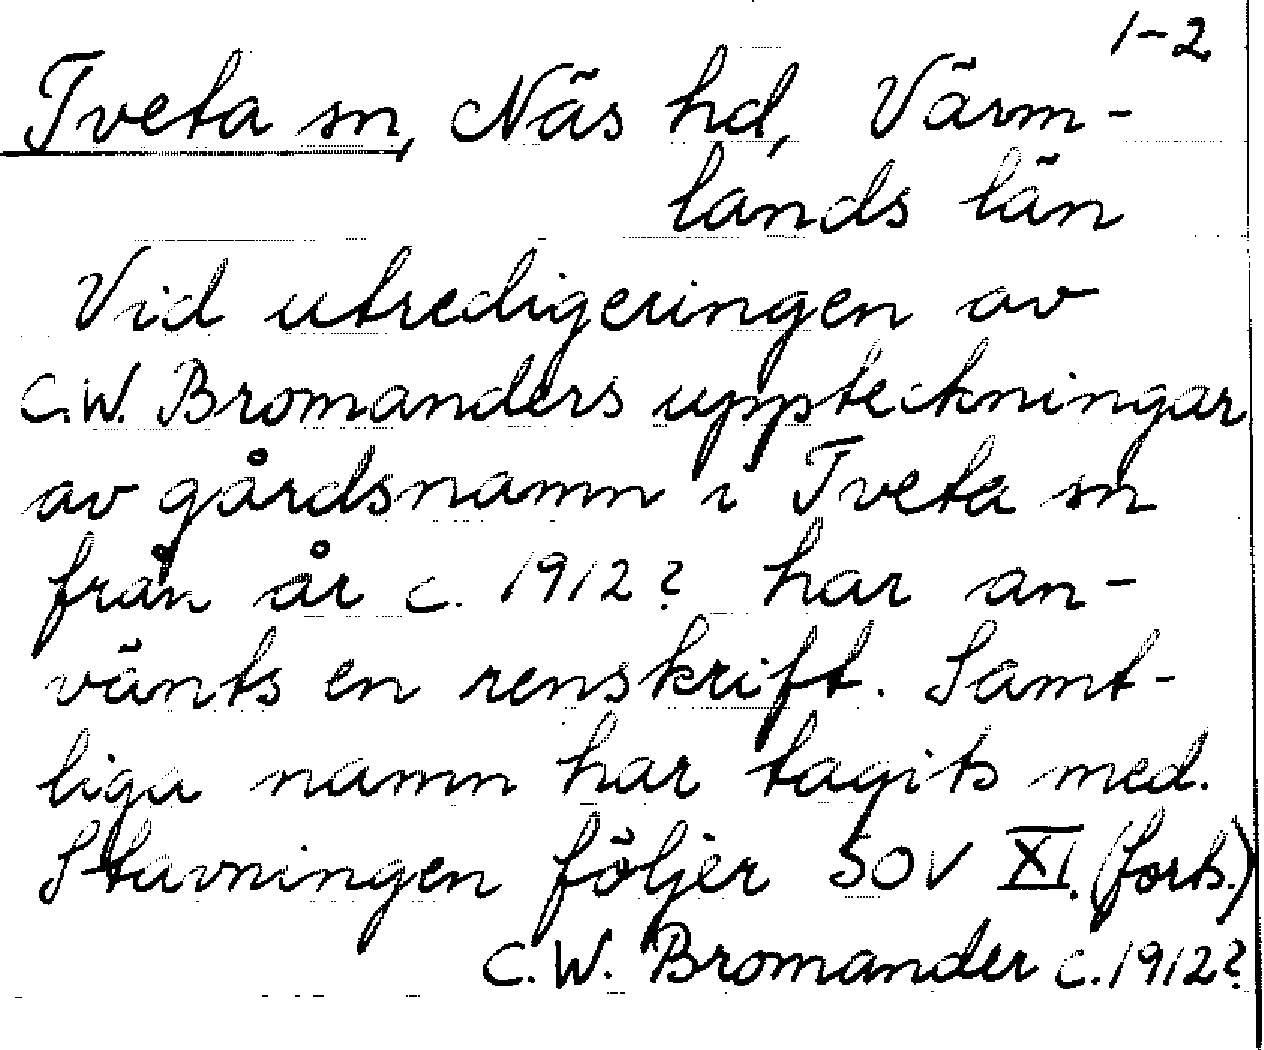 1-2
Tveta sn, Näs hd, Värm-
lands län
Vid utredigeringen av
C.W. Bromanders uppteckningar
av gårdsnamn i Tveta sn
från år c. 1912? har an-
vänts en renskrift. Samt-
liga namn har tagits med.
Stavningen följer SOV XI. (forts.)
C.W. Bromander c. 1912?